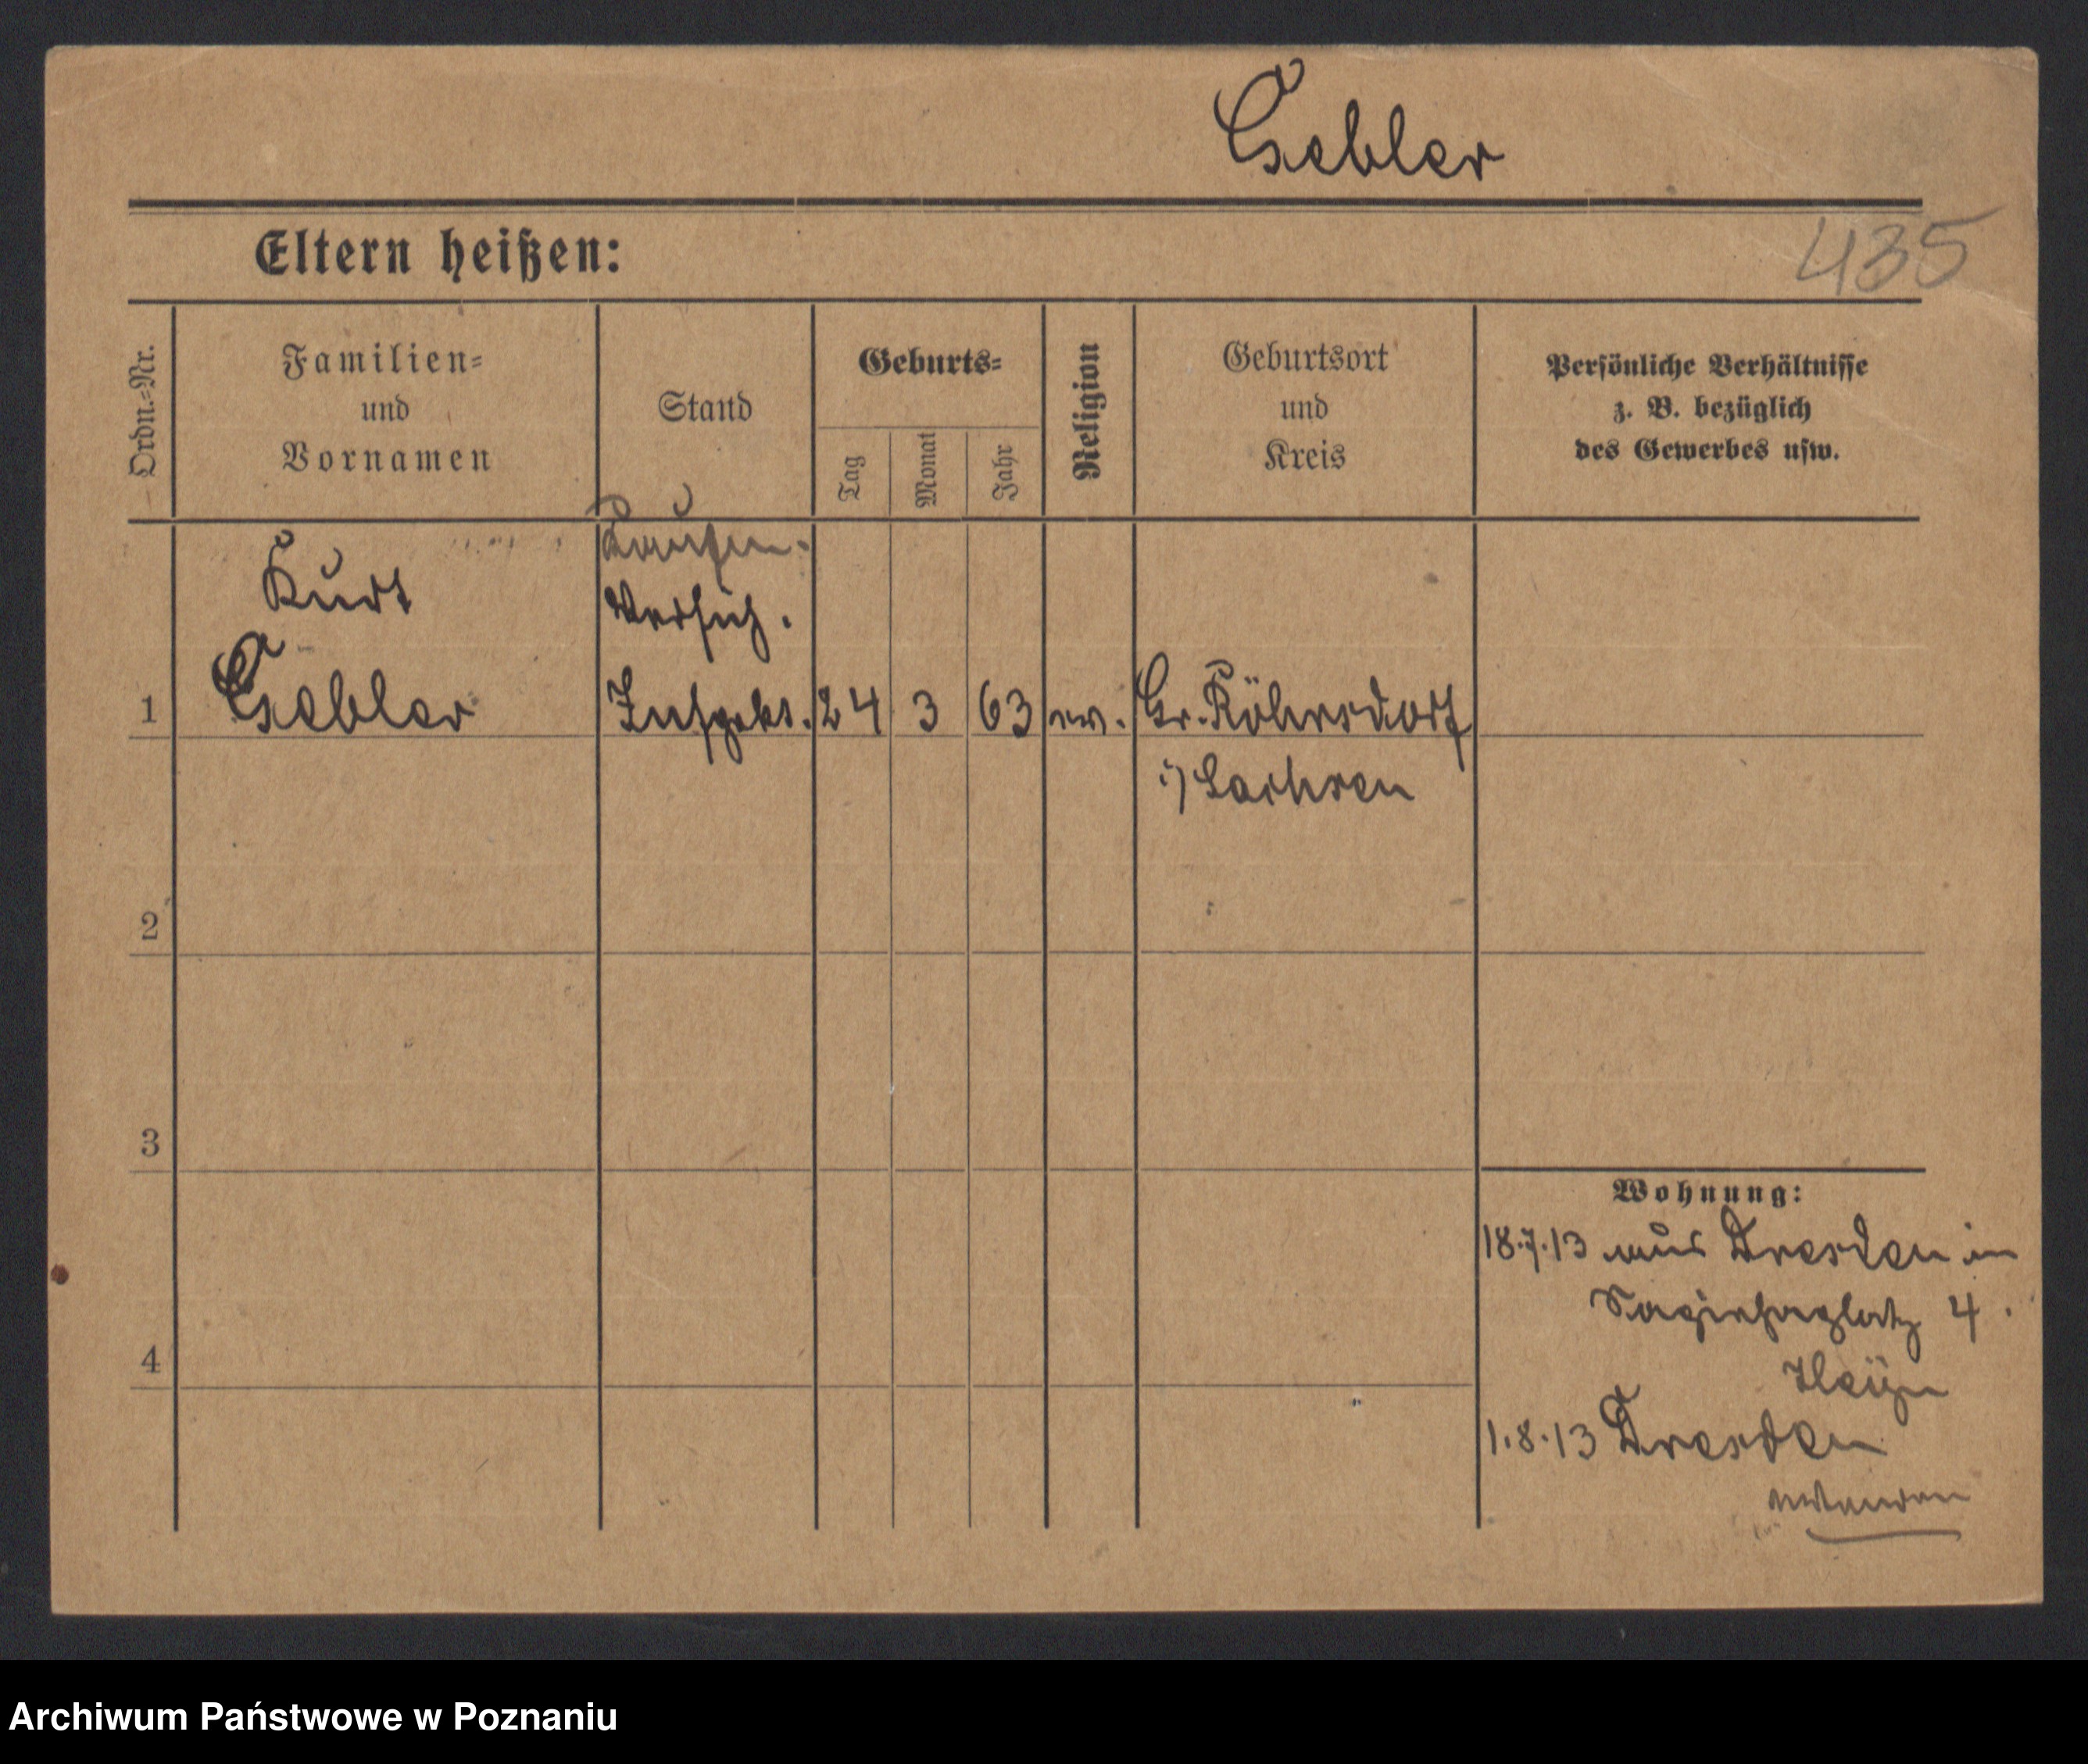 Gebler
Eltern heißen:
435
Ordn.=Nr.
Familien=
und
Vornamen
Stand
Geburts=
Tag
Monat
Jahr
Religion
Geburtsort
und
Kreis
Persönliche Verhältnisse
z. B. bezüglich
des Gewerbes usw.
Kaufm.
Kurt
Versich.
1 Gebler Inspekt. 24 3 63 ev. Gr. Röhrsdorf
i/ Sachsen
2
3
Wohnung:
18.7.13 aus Dresden in
Sapiehaplatz 4.
4
1.8.13 Dresden
Archiwum Państwowe w Poznaniu